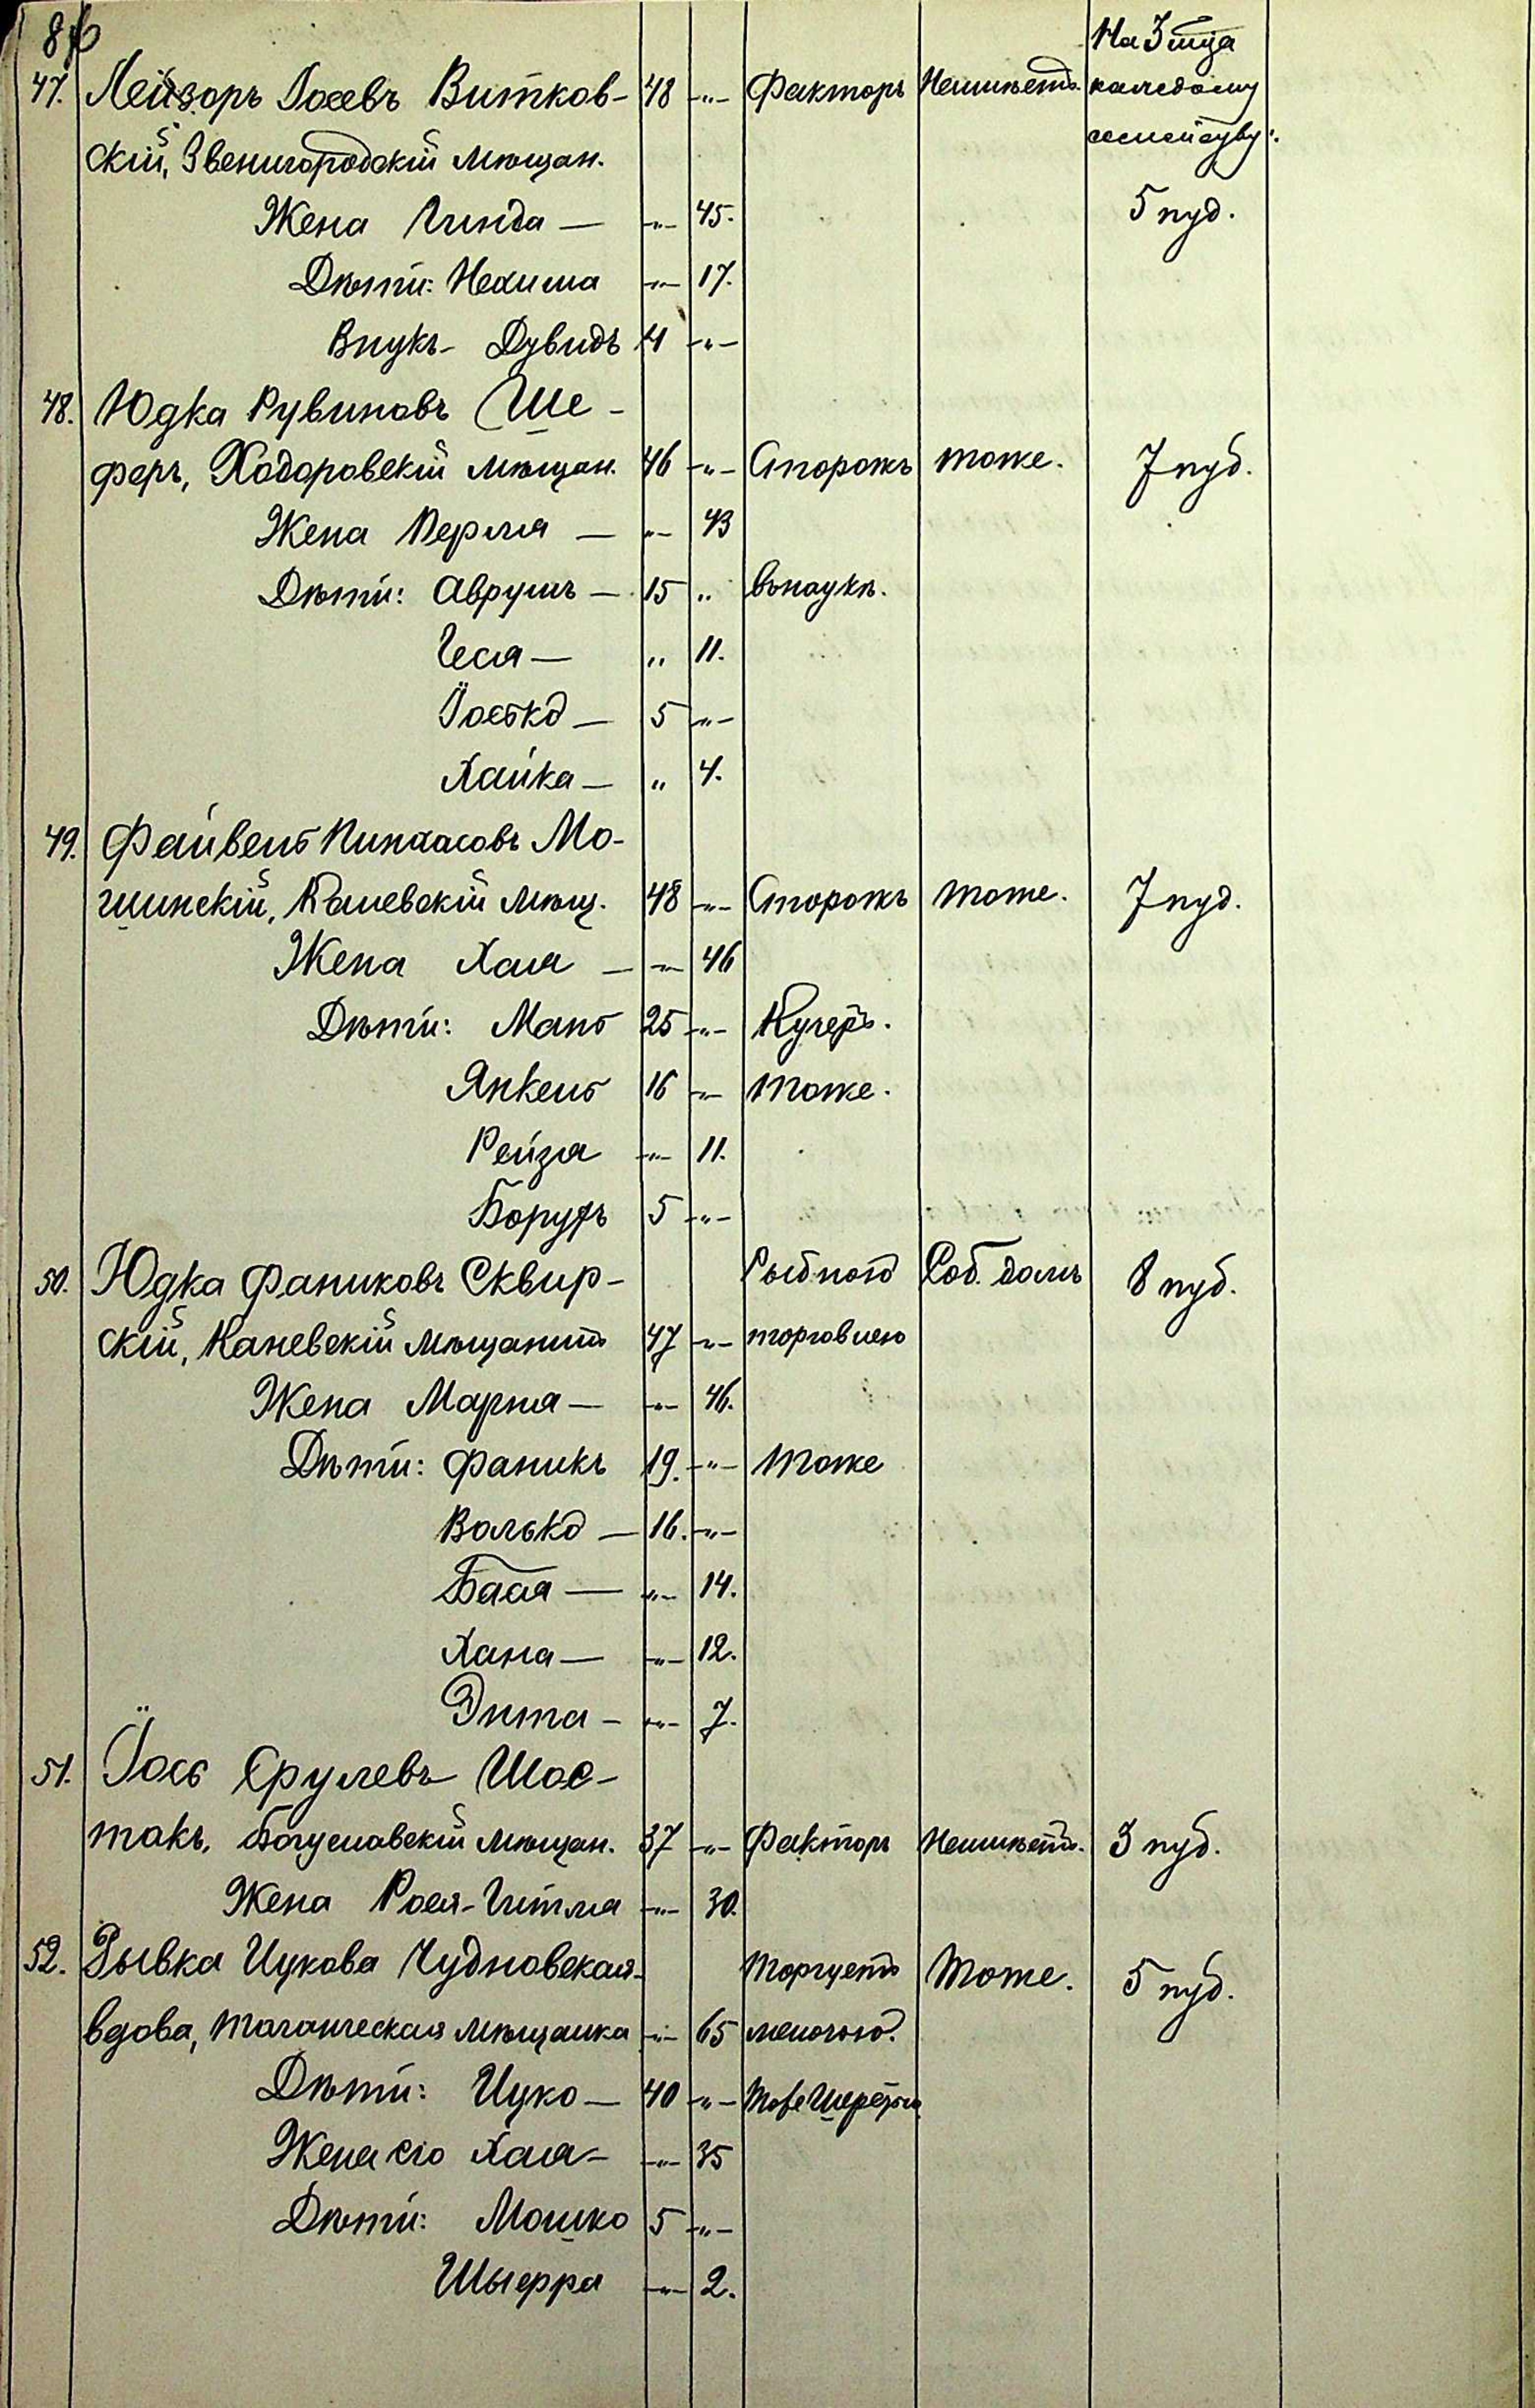 8
На 3 м-ца
47. Лейзоръ Іосевъ Витков- 48 -"- Факторъ Неимѣетъ каждому
скій, Звенигородскій мѣщан. семейству:
Жена Гинда — -"- 45. 5 пуд.
Дѣти: Нехима -"- 17.
Внукъ - Дувидъ 4 -"-
48. Юдка Рувиновъ Ше-
феръ, Ходоровскій мѣщан. 46 -"- Сторожъ тоже. 7 пуд.
Жена Перля — -"- 43
Дѣти: Аврумъ — 15 " въ наукѣ.
Геся — " 11.
Іоські — 5 -"-
Хайка — " 4.
49. Файвель Пинхасовъ Мо-
шинскій, Каневскій мѣщ. 48 -"- Сторожъ тоже. 7 пуд.
Жена Хая — -"- 46
Дѣти: Мань 25 -"- Кучеръ.
Янкель 16 -"- тоже.
Рейзя -"- 11.
Борухъ 5 -"-
50. Юдка Фаниковъ Сквир- Рыбною Соб. домъ 8 пуд.
скій, Каневскій мѣщанинъ 47 -"- торговлею
Жена Мария — -"- 46.
Дѣти: Фаникъ 19. -"- тоже
Волько — 16. -"-
Бася — -"- 14.
Хана — -"- 12.
Энта — -"- 7.
51. Іось Срулевъ Шос-
такъ, Богуславскій мѣщан. 37 -"- Факторъ Неимѣетъ. 3 пуд.
Жена Рося-Гитля -"- 30.
52. Рывка Ицкова Чудновская- Торгуетъ тоже. 5 пуд.
вдова, Таганческая мѣщанка -"- 65 мелочью.
Дѣти: Ицко — 40 -"- тоже
Жена его Хая — -"- 35
Дѣти: Мошко 5 -"-
-"- 2.